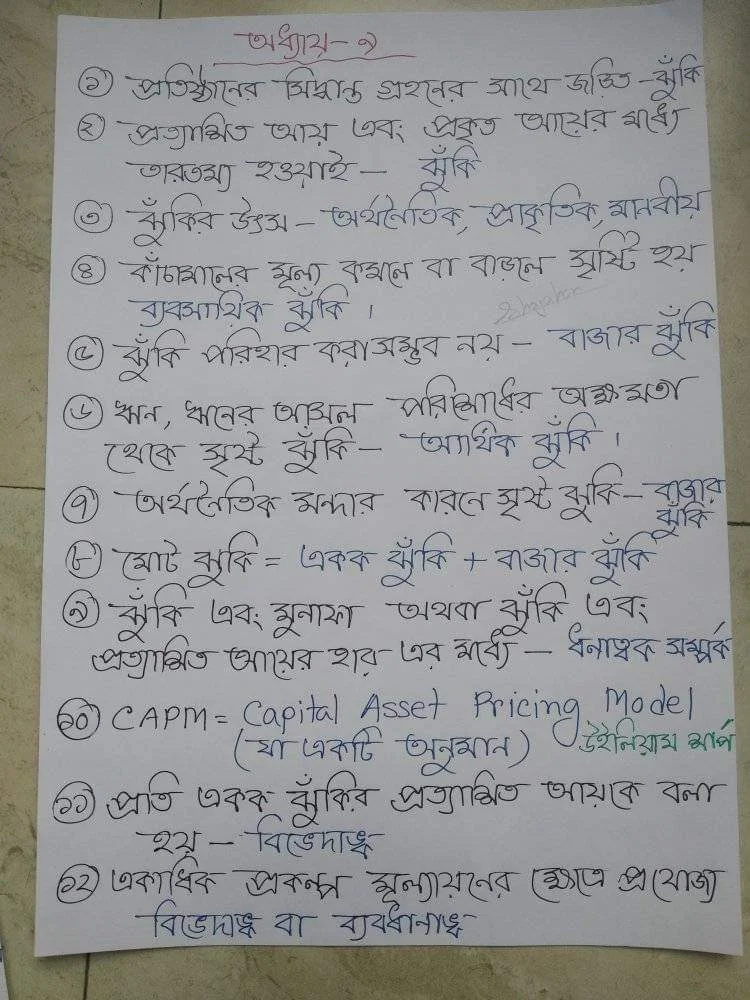 অধ্যায়-৯
১ প্রতিষ্ঠানের সিদ্ধান্ত গ্রহনের সাথে জড়িত - ঝুঁকি
২ প্রত্যাশিত আয় এবং প্রকৃত আয়ের মধ্যে
তারতম্য হওয়াই - ঝুঁকি
৩ ঝুঁকির উৎস - অর্থনৈতিক, প্রাকৃতিক, মানবীয়
৪ কাঁচামালের মূল্য কমলে বা বাড়লে সৃষ্টি হয়
ব্যবসায়িক ঝুঁকি ।
৫ ঝুঁকি পরিহার করা সম্ভব নয় - বাজার ঝুঁকি
৬ ঋন, ঋনের আসল পরিশোধের অক্ষমতা
থেকে সৃষ্ট ঝুঁকি - আর্থিক ঝুঁকি ।
৭ অর্থনৈতিক মন্দার কারনে সৃষ্ট ঝুকি - বাজার
ঝুঁকি
৮ মোট ঝুকি = একক ঝুঁকি + বাজার ঝুঁকি
৯ ঝুঁকি এবং মুনাফা অথবা ঝুঁকি এবং
প্রত্যাশিত আয়ের হার এর মধ্যে - ধনাত্বক সম্পর্ক
১০ CAPM = Capital Asset Pricing Model
(যা একটি অনুমান) উইলিয়াম শার্প
১১ প্রতি একক ঝুঁকির প্রত্যাশিত আয়কে বলা
হয় - বিভেদাঙ্ক
১২ একাধিক প্রকল্প মূল্যায়নের ক্ষেত্রে প্রযোজ্য
বিভেদাঙ্ক বা ব্যবধানাঙ্ক